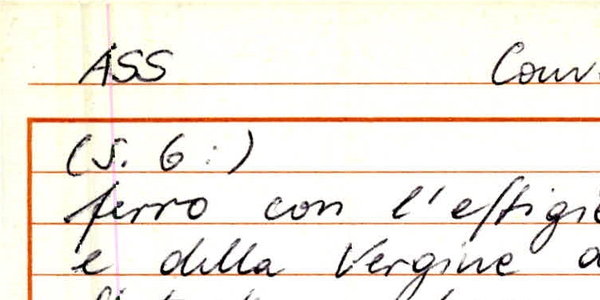 ASS Conv.
(S. 6:)
ferro con l'effigie
e della Vergine